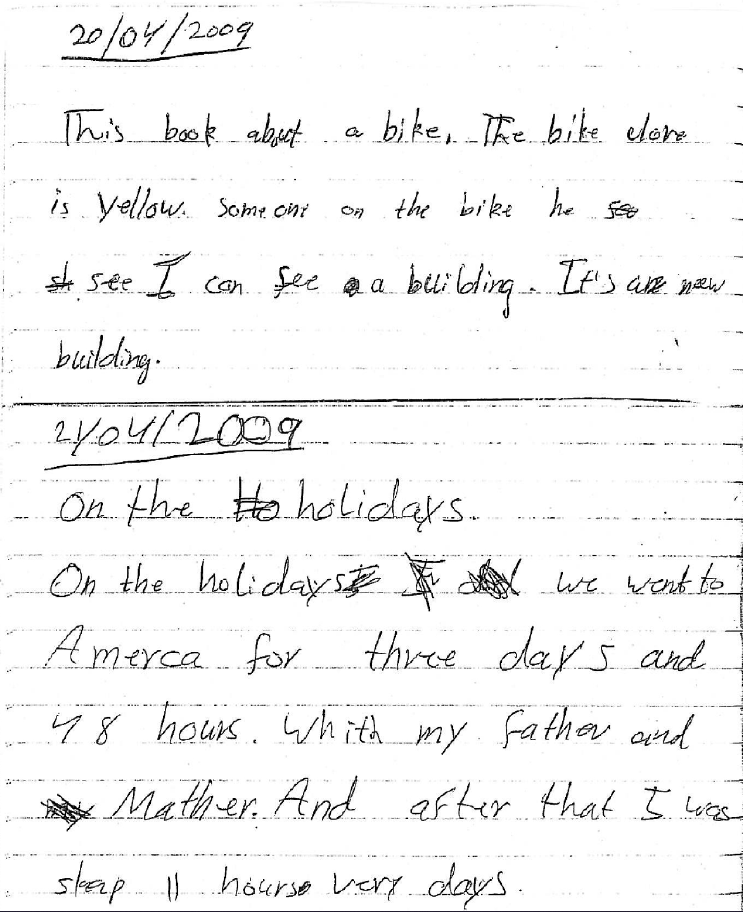 20/04/2009
This book about a bike. The bike
is yellow. Someone on the bike he see
see I can see a building. It's are new
building.
21/04/2009
On the holidays.
On the holidays we went to
Amerca for three days and
48 hours. Whith my father and
Mather. And after that I was
sleep 11 hours very days.